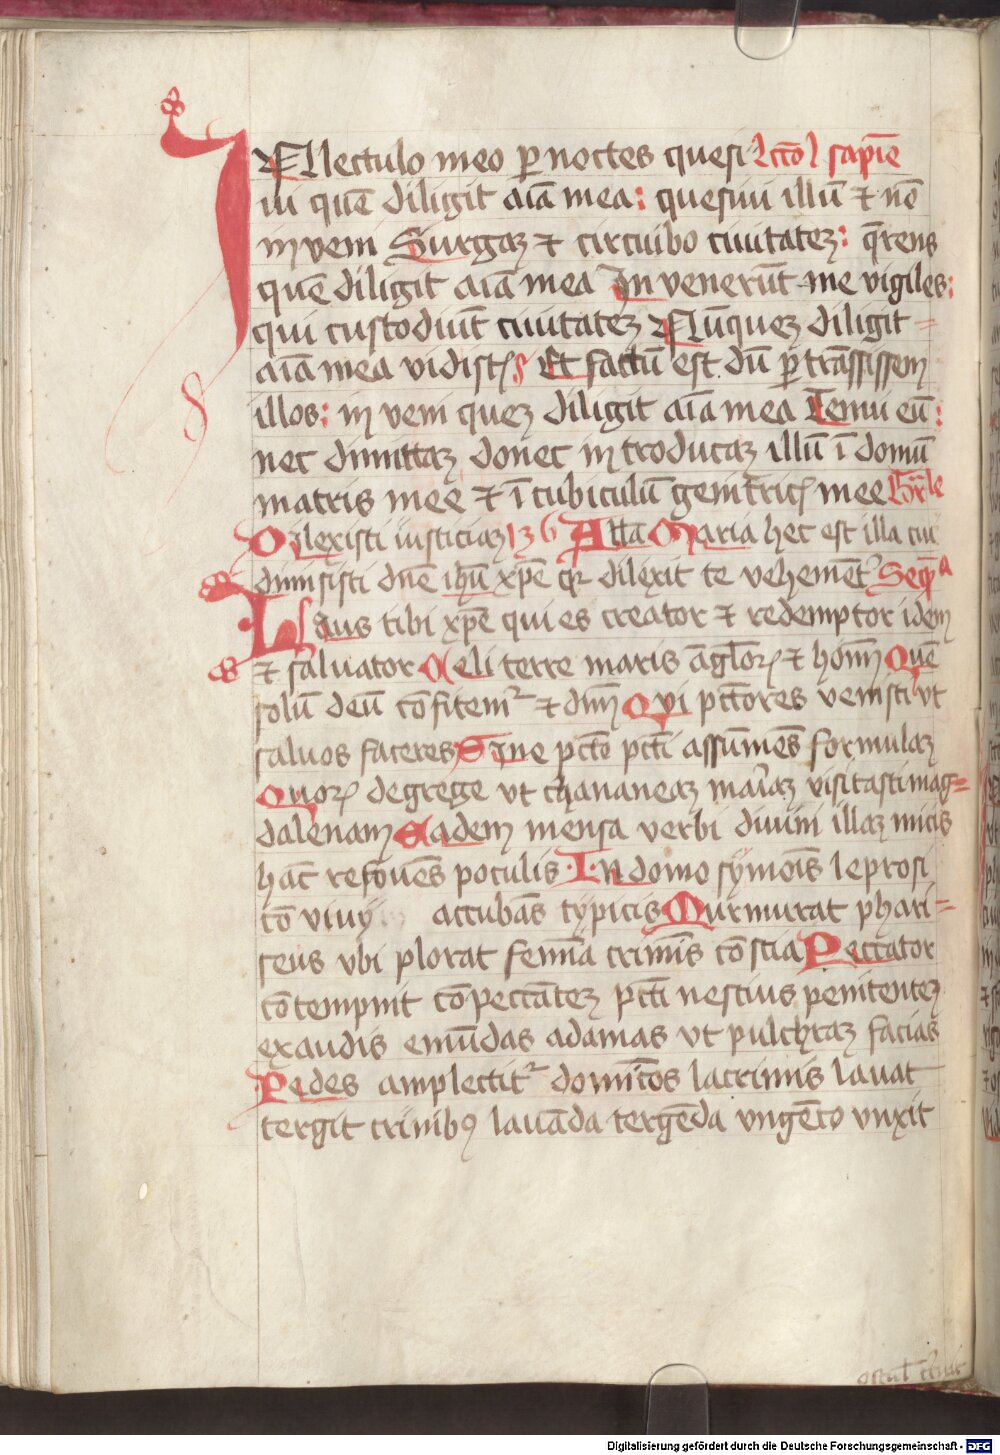 IN lectulo meo p noctes quesi lcco l sapie
ui quē diligit aīa mea: quesiui illū et nō
inveni Surgam et circuibo ciuitatem: qrens
quē diligit aīa mea Invenerūt me vigiles:
qui custodiūt ciuitatem Nūquem diligit
aīa mea vidistis Et factū est dū ptrāssissem
illos: inveni quem diligit aīa mea Tenui eū:
nec dimittam donec introducam illū ī domū
matris mee et ī cubiculū genitricis mee
Dilexisti iusticiam 136 Alla Maria hec est illa cui
dimisisti dnē ihū xpē qr dilexit te vehement Seqa
Laus tibi xpē qui es creator et redemptor idem
et saluator Celi terre maris āglorum et homm Quē
solū deū cōfitemr et dmm Qui pctōres venisti vt
saluos faceres Sine pctō pcti assūmēs formulam
Quorum de grege vt chananeam mariam visitasti mag=
dalenam Eadem mensa verbi diuini illam micis
hāc refouēs poculis In domo symōis leprosi
cō viuy accubās typicis Murmurat phari=
seus vbi plorat femīa crimīs cōscia Peccator
cōtempnit cōpeccātem pcti nescius penitentem
exaudis emūdas adamas vt pulchram facias
Pedes amplectitr domīcos lacrimis lauat
tergit crinibus lauāda tergēda vngēto vnxit
Digitalisierung gefördert durch die Deutsche Forschungsgemeinschaft - DFG